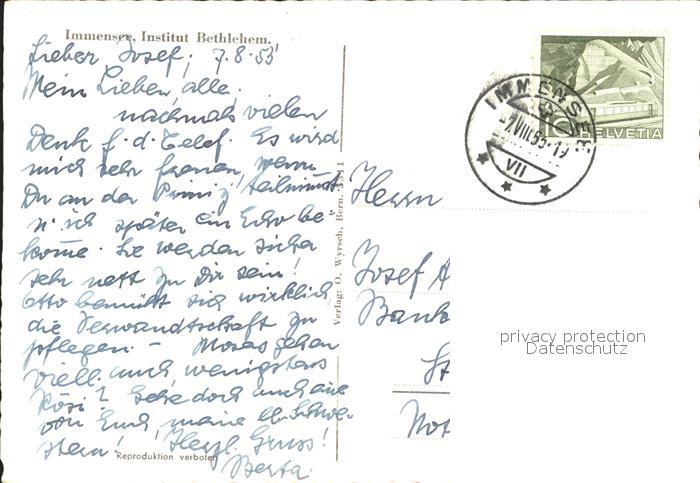 Immensee, Institut Bethlehem.
Lieber Josef, 7.8.53
Mein Lieben alle.
nochmals vielen
Dank f. d. Telef. Es wird
mich sehr freuen, wenn
Du an der teilnimmst
u. ich später ein Echo be-
komme. Sie werden sicher
sehr nett zu Dir sein!
Otto bemüht sich wirklich,
die Verwandtschaft zu
pflegen. –
viell. auch wenigstens
Rösi? doch auch eine
von Euch, meine
stern! Herzl. Gruss!
Berta.
Reproduktion verboten
Verlag: O. Wyrsch, Bern.
HELVETIA
10
IMMENSEE
VIII.53-19
VII
Herrn
Josef A
Bank
St
Not
privacy protection
Datenschutz